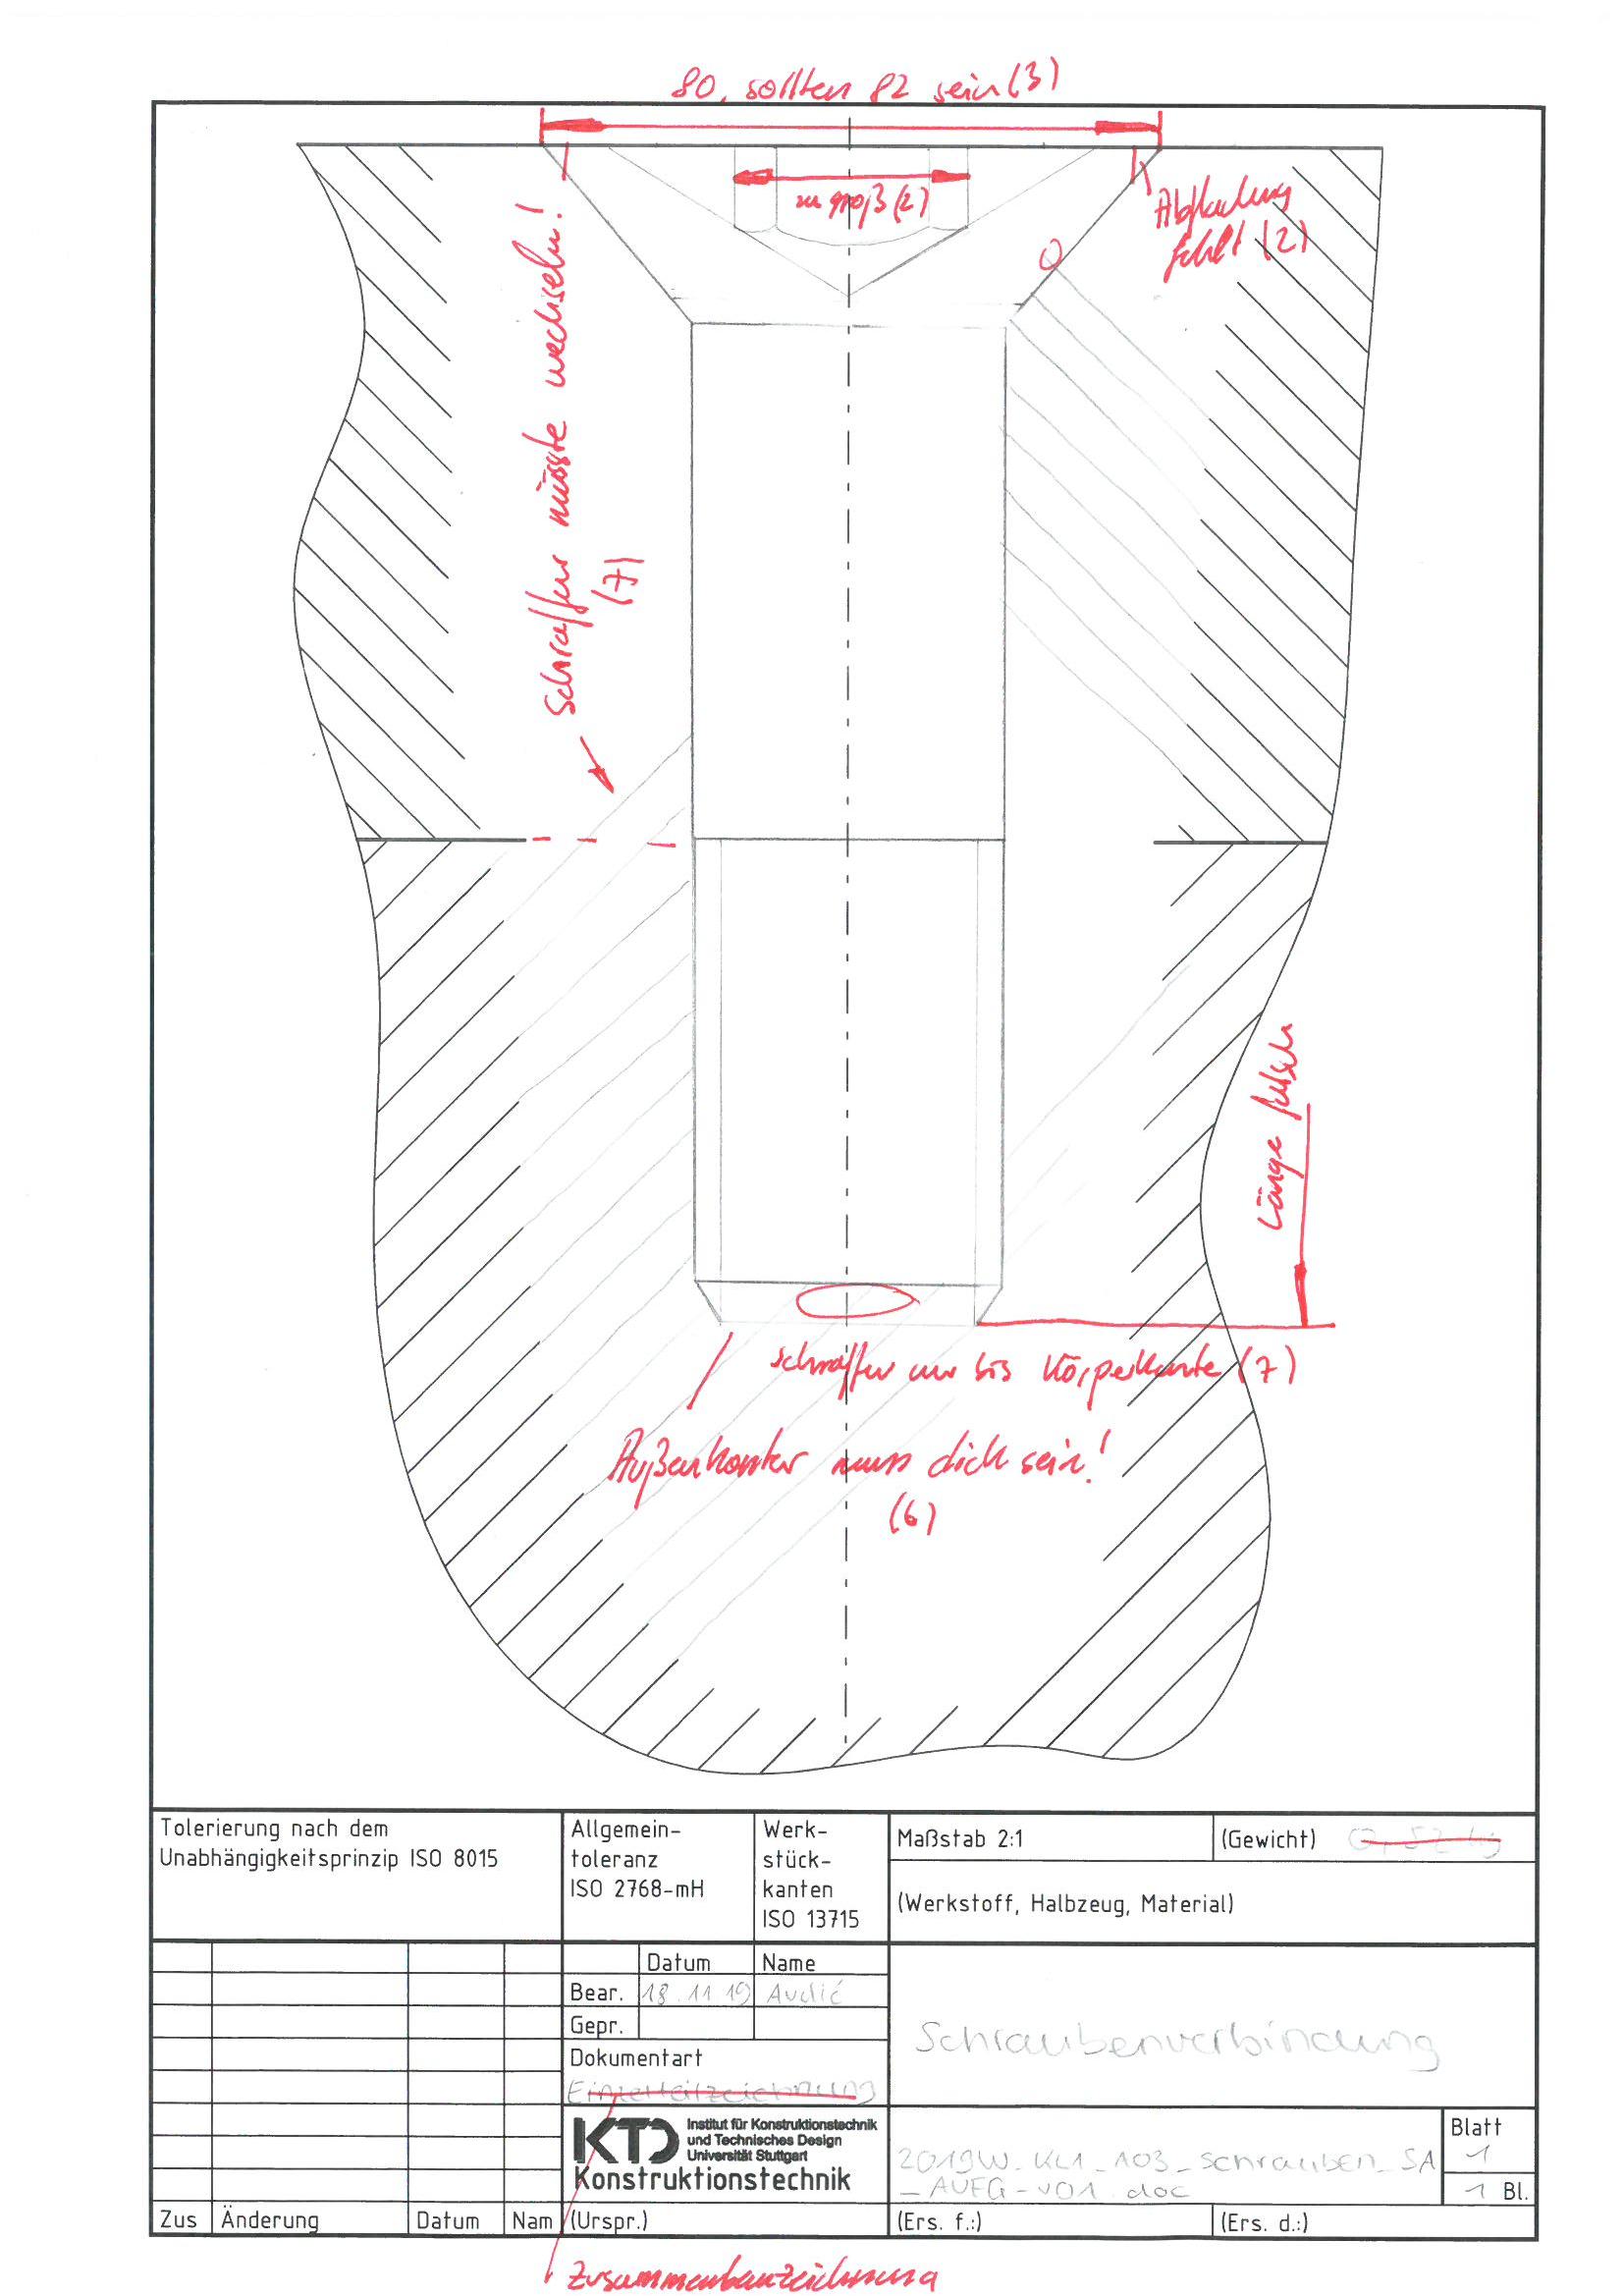 80, sollten 82 sein (3)
zu groß (2)
Abflachung
fehlt (2)
Schraffur müsste wechseln!
(7)
Länge falsch
Schraffur nur bis Körperkante (7)
Außenkanten muss dick sein!
(6)
Tolerierung nach dem
Unabhängigkeitsprinzip ISO 8015
Allgemein-
toleranz
ISO 2768-mH
Werk-
stück-
kanten
ISO 13715
Maßstab 2:1
(Gewicht)
(Werkstoff, Halbzeug, Material)
Datum Name
Bear. 18.11.19 Avdić
Gepr.
Dokumentart
Einzelteilzeichnung
Schraubenverbindung
KTD Institut für Konstruktionstechnik
und Technisches Design
Universität Stuttgart
Konstruktionstechnik
2019W_KL1_103_Schrauben_SA
_AUFG_v01.doc
Blatt
1
1 Bl.
Zus Änderung Datum Nam (Urspr.) (Ers. f.:) (Ers. d.:)
Zusammenbauzeichnung